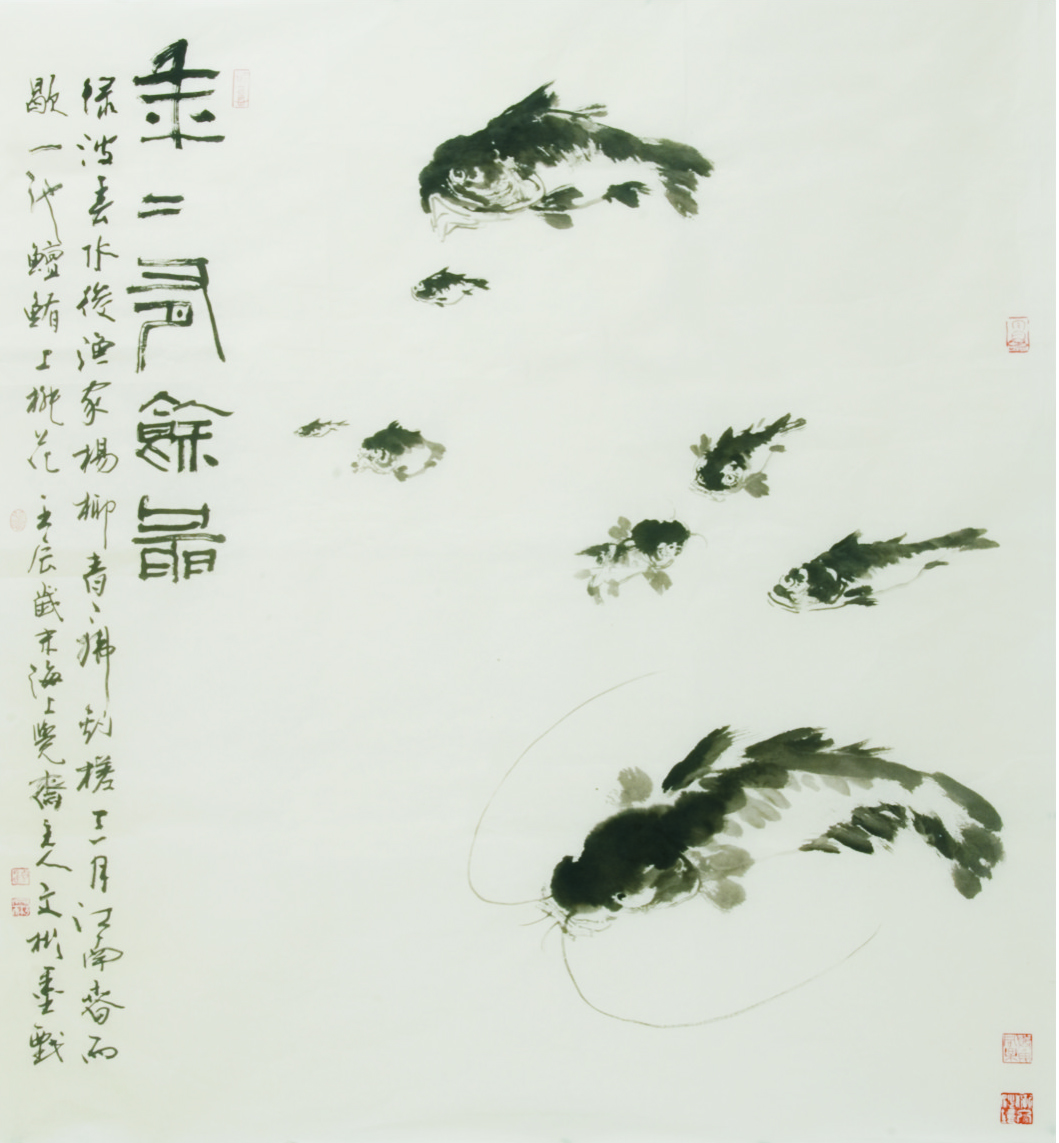 年二有餘圖
綠波春水後漁家楊柳青〻拂釣槎三月江南春雨
歇一池鱣鮪上桃花 壬辰歲末海上覺齋主人文彬墨戲